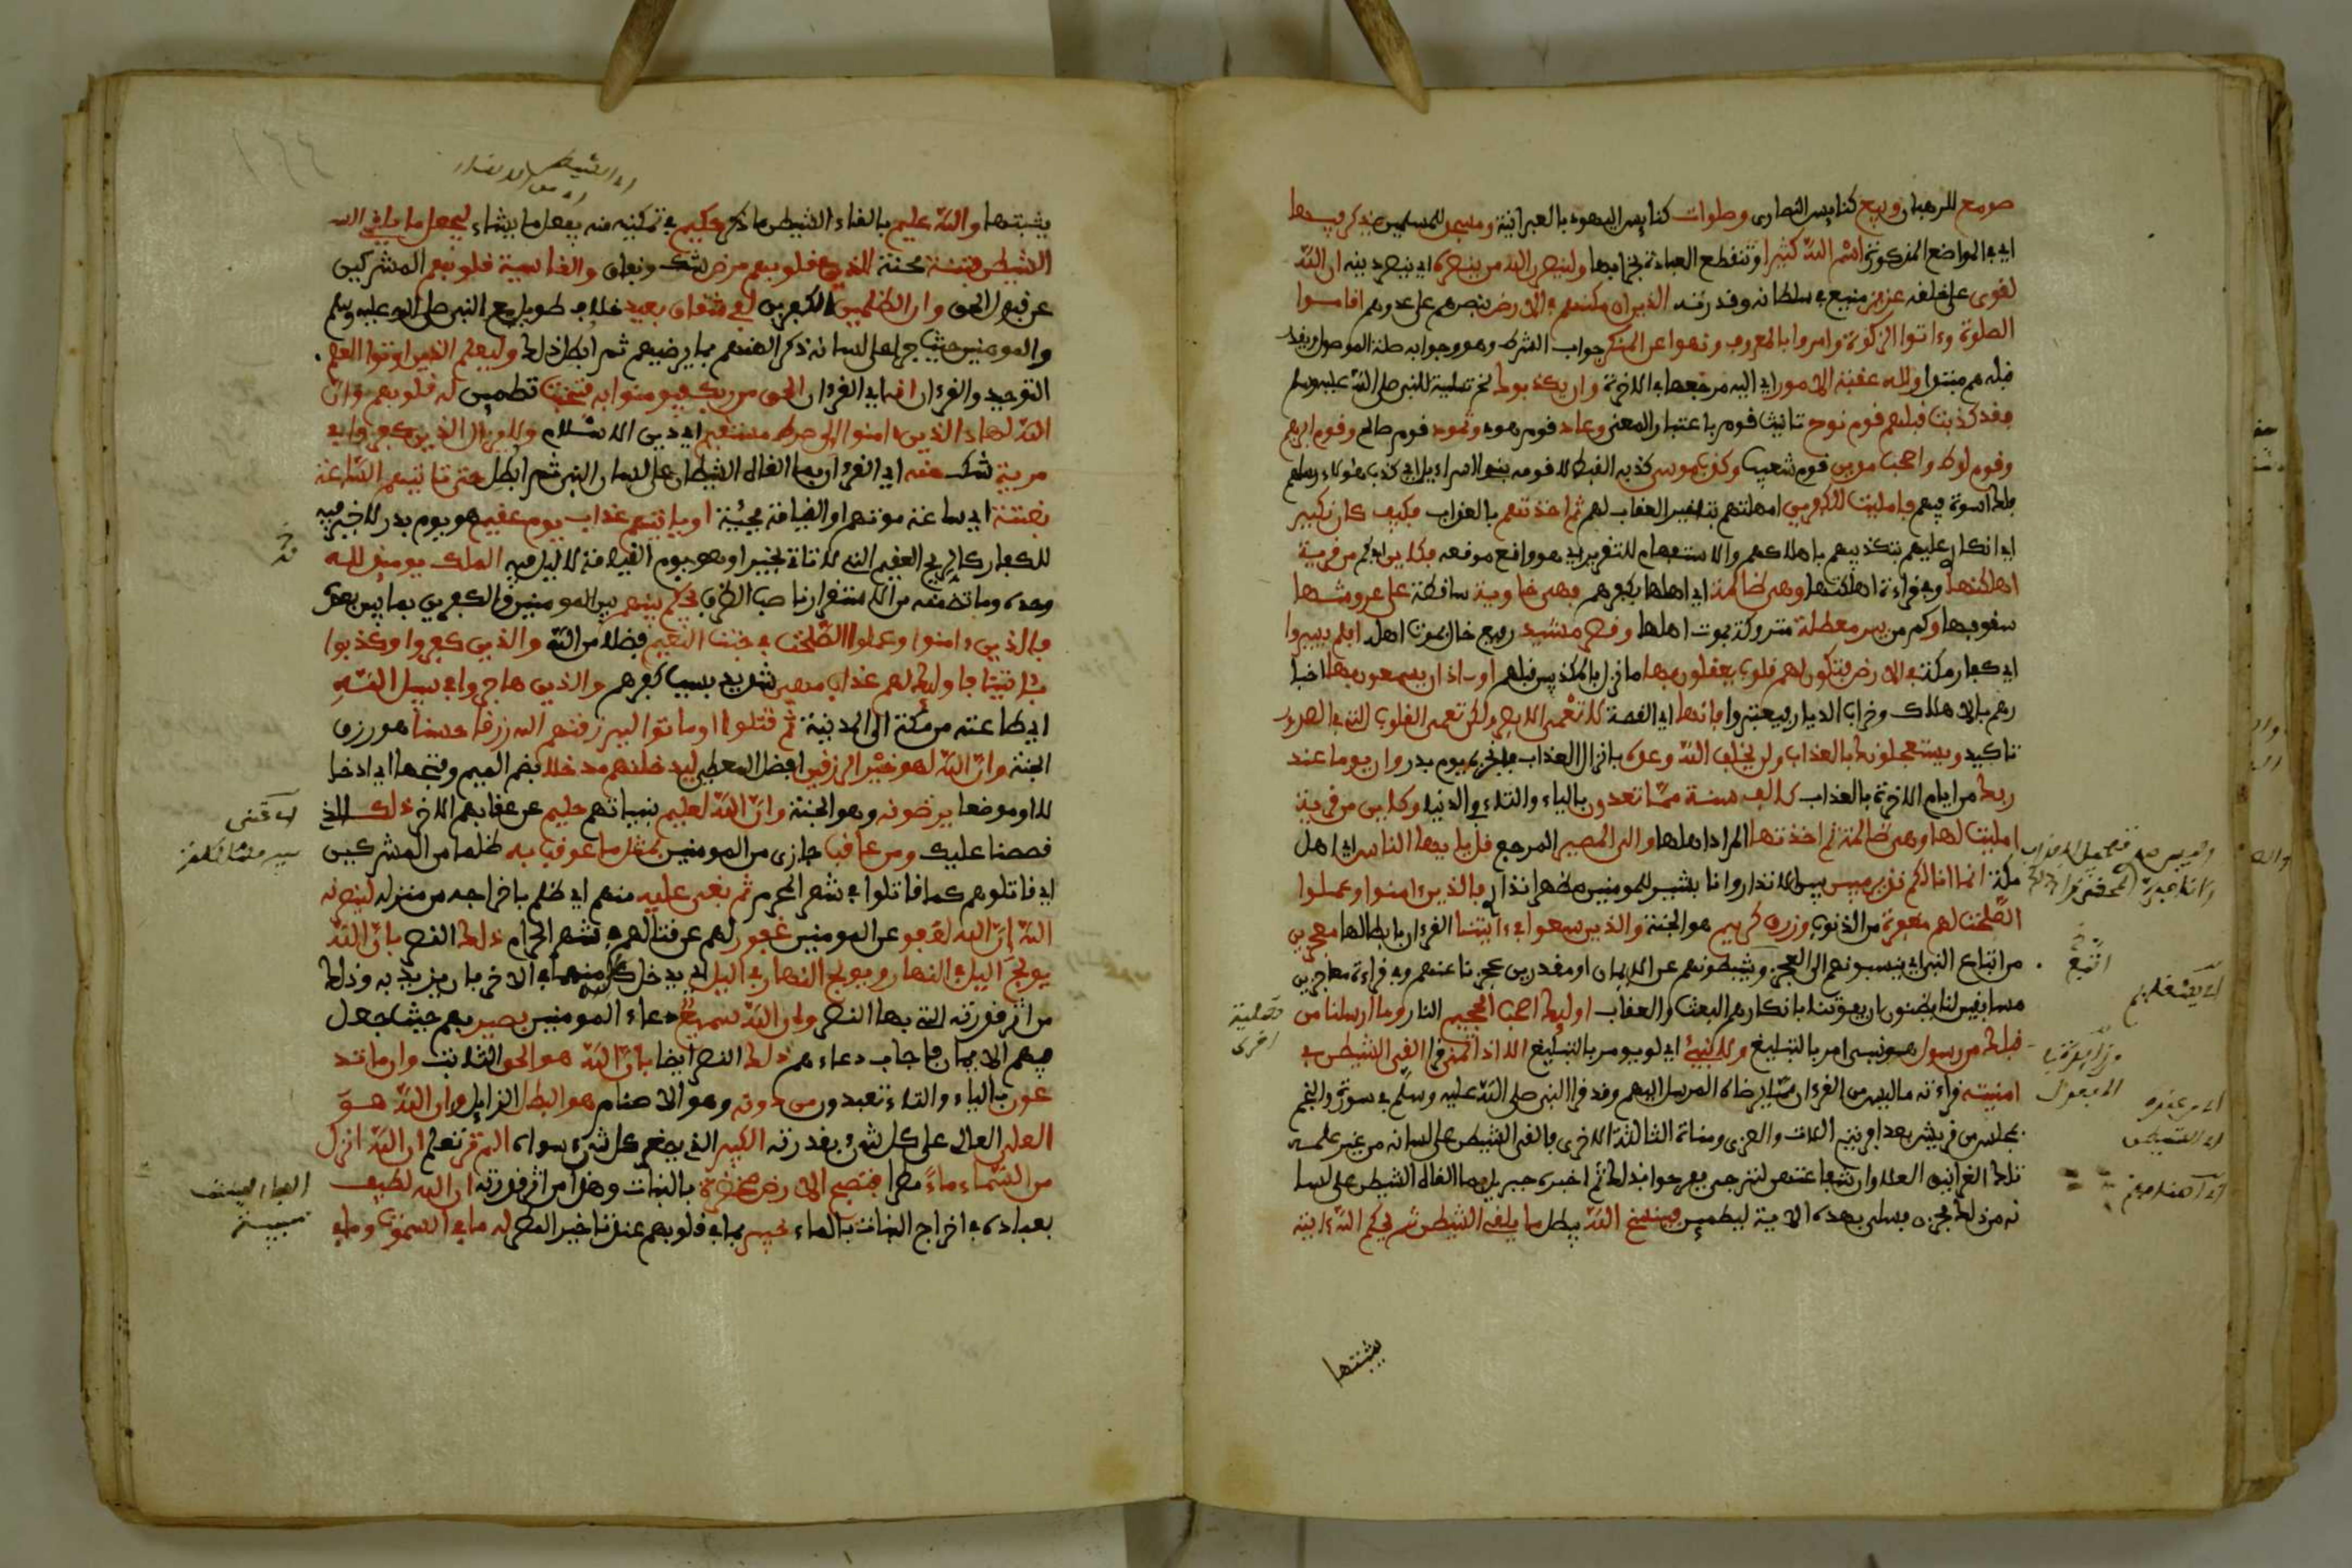 صومع للرهبان وبيع كنايس النصارى وصلوات كنايس اليهود بالعبرانية ومسجد للمسلمين يذكر فيها
اي في المواضع المذكورة اسم الله كثيرا وتنقطع العبادة بخرابها ولينصرن الله من ينصره اي ينصر دينه ان الله
لقوي على خلقه عزيز منيع في سلطانه وقدرته الذين ان مكنهم في الارض بنصرهم على عدوهم اقاموا
الصلوة وءاتوا الزكوة وامروا بالمعروف ونهوا عن المنكر جواب الشرط وهو وجوابه صلة الموصول ويقدر
قبله هم مبتدا ولله عقبة الامور اي اليه مرجعها في الاخرة وان يكذبوك الخ تسلية للنبي صلى الله عليه وسلم
فقد كذبت قبلهم قوم نوح تانيث قوم باعتبار المعنى وعاد قوم هود وثمود قوم صالح وقوم ابرهيم
وقوم لوط واصحب مدين قوم شعيب وكذب موسى كذبه القبط لا قومه بنو اسراءيل اي كذب هؤلاء رسلهم
فلك اسوة بهم فامليت للكفرين امهلتهم بتاخير العقاب لهم ثم اخذتهم بالعذاب فكيف كان نكير
اي انكاري عليهم بتكذيبهم باهلاكهم والاستفهام للتقرير اي هو واقع موقعه فكاين اي كم من قرية
اهلكتها وفي قراءة اهلكنها وهي ظالمة اي اهلها بكفرهم فهي خاوية ساقطة على عروشها
سقوفها وكم من بير معطلة متروكة بموت اهلها وقصر مشيد رفيع خال بموت اهله افلم يسيروا
اي كفار مكة في الارض فتكون لهم قلوب يعقلون بها ما نزل بالمكذبين قبلهم او ءاذان يسمعون بها اخبا
رهم بالاهلاك وخراب الديار فيعتبروا فانها اي القصة لا تعمى الابصر ولكن تعمى القلوب التي في الصدور
تاكيد ويستعجلونك بالعذاب ولن يخلف الله وعده بانزال العذاب فانجزه يوم بدر وان يوما عند
ربك من ايام الاخرة بالعذاب كالف سنة مما تعدون بالياء والتاء في الدنيا وكاين من قرية
امليت لها وهي ظالمة ثم اخذتها المراد اهلها والي المصير المرجع قل يايها الناس اي اهل
مكة انما انا لكم نذير مبين بين الانذار وانا بشير للمومنين فالذين ءامنوا وعملوا
الصلحت لهم مغفرة من الذنوب ورزق كريم هو الجنة والذين سعوا في ءايتنا القرءان بابطالها معجزين
من اتباع النبي اي ينسبونهم الى العجز ويثبطونهم عن الايمان او مقدرين عجزنا عنهم وفي قراءة معاجزين
مسابقين لنا يظنون ان يفوتنا بانكارهم البعث والعقاب اوليك اصحب الجحيم النار وما ارسلنا من
قبلك من رسول هو نبي امر بالتبليغ ولا نبيء اي لم يومر بالتبليغ الا اذا تمنى قرا القى الشيطن في
امنيته قراءته ما ليس من القرءان مما يرضاه المرسل اليهم وقد قرا النبي صلى الله عليه وسلم في سورة والنجم
بمجلس من قريش بعد افريتم اللات والعزى ومناة الثالثة الاخرى بالقاء الشيطن على لسانه من غير علمه
تلك الغرانيق العلا وان شفاعتهن لترتجى ففرحوا بذلك ثم اخبره جبريل بما القاه الشيطن على لسا
نه من ذلك فحزن فسلي بهذه الاية ليطمين فينسخ الله يبطل ما يلقي الشيطن ثم يحكم الله ءايته
يثبتها
يثبتها والله عليم بالقاء الشيطن ما ذكر حكيم في تمكينه منه يفعل ما يشاء ليجعل ما يلقي الله
الشيطن فتنة محنة للذين في قلوبهم مرض شك ونفاق والقاسية قلوبهم المشركين
عن قبول الحق وان الظلمين الكفرين لفي شقاق بعيد خلاف طويل مع النبي صلى الله عليه وسلم
والمومنين حيث جرى على لسانه ذكر الهتهم بما يرضيهم ثم ابطل ذلك وليعلم الذين اوتوا العلم
التوحيد والقرءان انه اي القرءان الحق من ربك فيومنوا به فتخبت تطمين له قلوبهم وان
الله لهاد الذين ءامنوا الى صرط مستقيم اي دين الاسلام ولا يزال الذين كفروا في
مرية شك منه اي القرءان بما القاه الشيطان على لسان النبي ثم ابطل حتى تاتيهم الساعة
بغتة اي ساعة موتهم او القيامة فجئة او ياتيهم عذاب يوم عقيم هو يوم بدر لا خير فيه
للكفار كالريح العقيم التي لا تاتي بخير او هو يوم القيامة لا ليل فيه الملك يوميذ لله
وحده وما تضمنه من الاستقرار ناصب للظرف يحكم بينهم بين المومنين والكفرين بما بين بعده
فالذين ءامنوا وعملوا الصلحت في جنت النعيم فضلا من الله والذين كفروا وكذبوا
بئايتنا فاوليك لهم عذاب مهين شديد بسبب كفرهم والذين هاجروا في سبيل الله
اي طاعته من مكة الى المدينة ثم قتلوا او ماتوا ليرزقنهم الله رزقا حسنا هو رزق
الجنة وان الله لهو خير الرزقين افضل المعطين ليدخلنهم مدخلا بضم الميم وفتحها اي ادخا
لا او موضعا يرضونه وهو الجنة وان الله لعليم بنياتهم حليم عن عقابهم الامر ذلك الذي
قصصنا عليك ومن عاقب جازى من المومنين بمثل ما عوقب به ظلما من المشركين
اي قاتلوهم كما قاتلوا في شهر المحرم ثم بغي عليه منهم اي ظلم باخراجه من منزله لينصرنه
الله ان الله لعفو عن المومنين غفور لهم عن قتالهم في شهر الحرام ذلك النصر بان الله
يولج اليل في النهار ويولج النهار في اليل اي يدخل كلا منهما في الاخر بان يزيد به وذلك
من اثر قدرته التي بها النصر وان الله سميع دعاء المومنين بصير بهم حيث جعل
فيهم الايمان فاجاب دعاءهم ذلك النصر ايضا بان الله هو الحق الثابت وان ما تد
عون بالياء والتاء تعبدون من دونه وهو الاصنام هو البطل الزايل وان الله هو
العلي العالي على كل شيء بقدرته الكبير الذي يصغر كل شيء سواه الم تر تعلم ان الله انزل
من السماء ماء مطرا فتصبح الارض مخضرة بالنبات وهذا من اثر قدرته ان الله لطيف
بعباده في اخراج النبات بالماء خبير بما في قلوبهم عند تاخير المطر له ما في السموت وما في